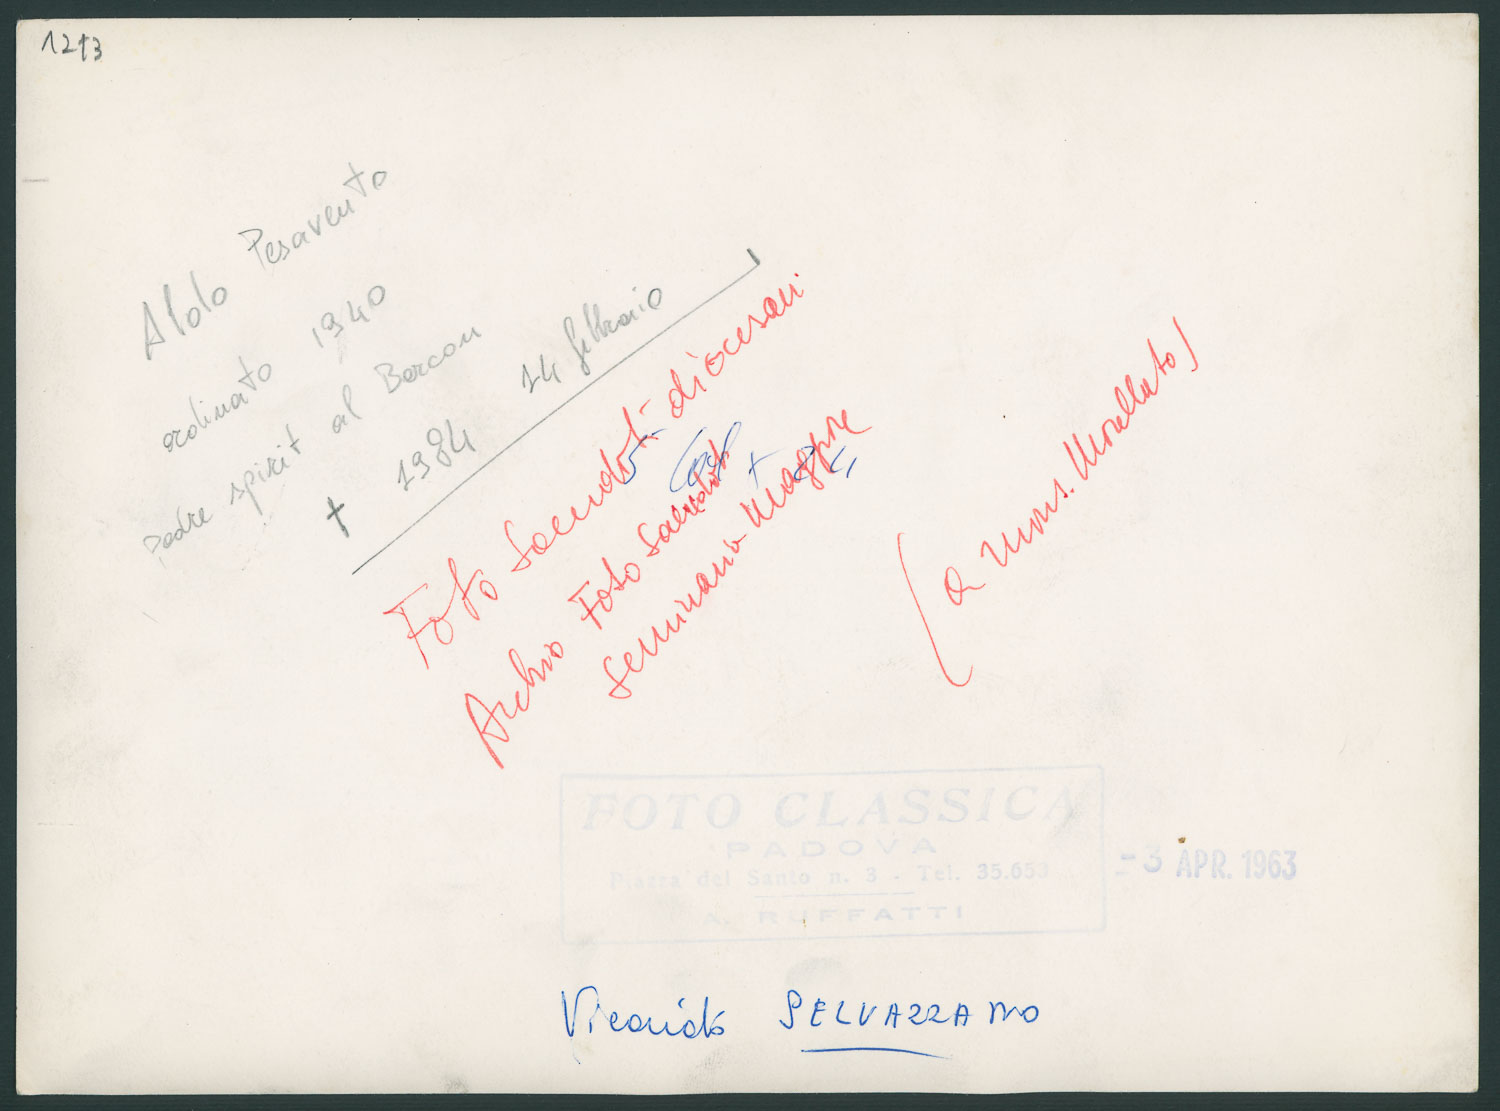 1213
Aldo Pesavento
ordinato 1940
padre spirit al Barcon
† 1984 14 febbraio
Foto Sacerdoti diocesani
Archivio Foto Sacerdoti
Seminario Maggiore
(a Mons. Morellato)
FOTO CLASSICA
PADOVA
Piazza del Santo n. 3 - Tel. 35.653
A. RUFFATTI
- 3 APR. 1963
Vicariato SELVAZZANO